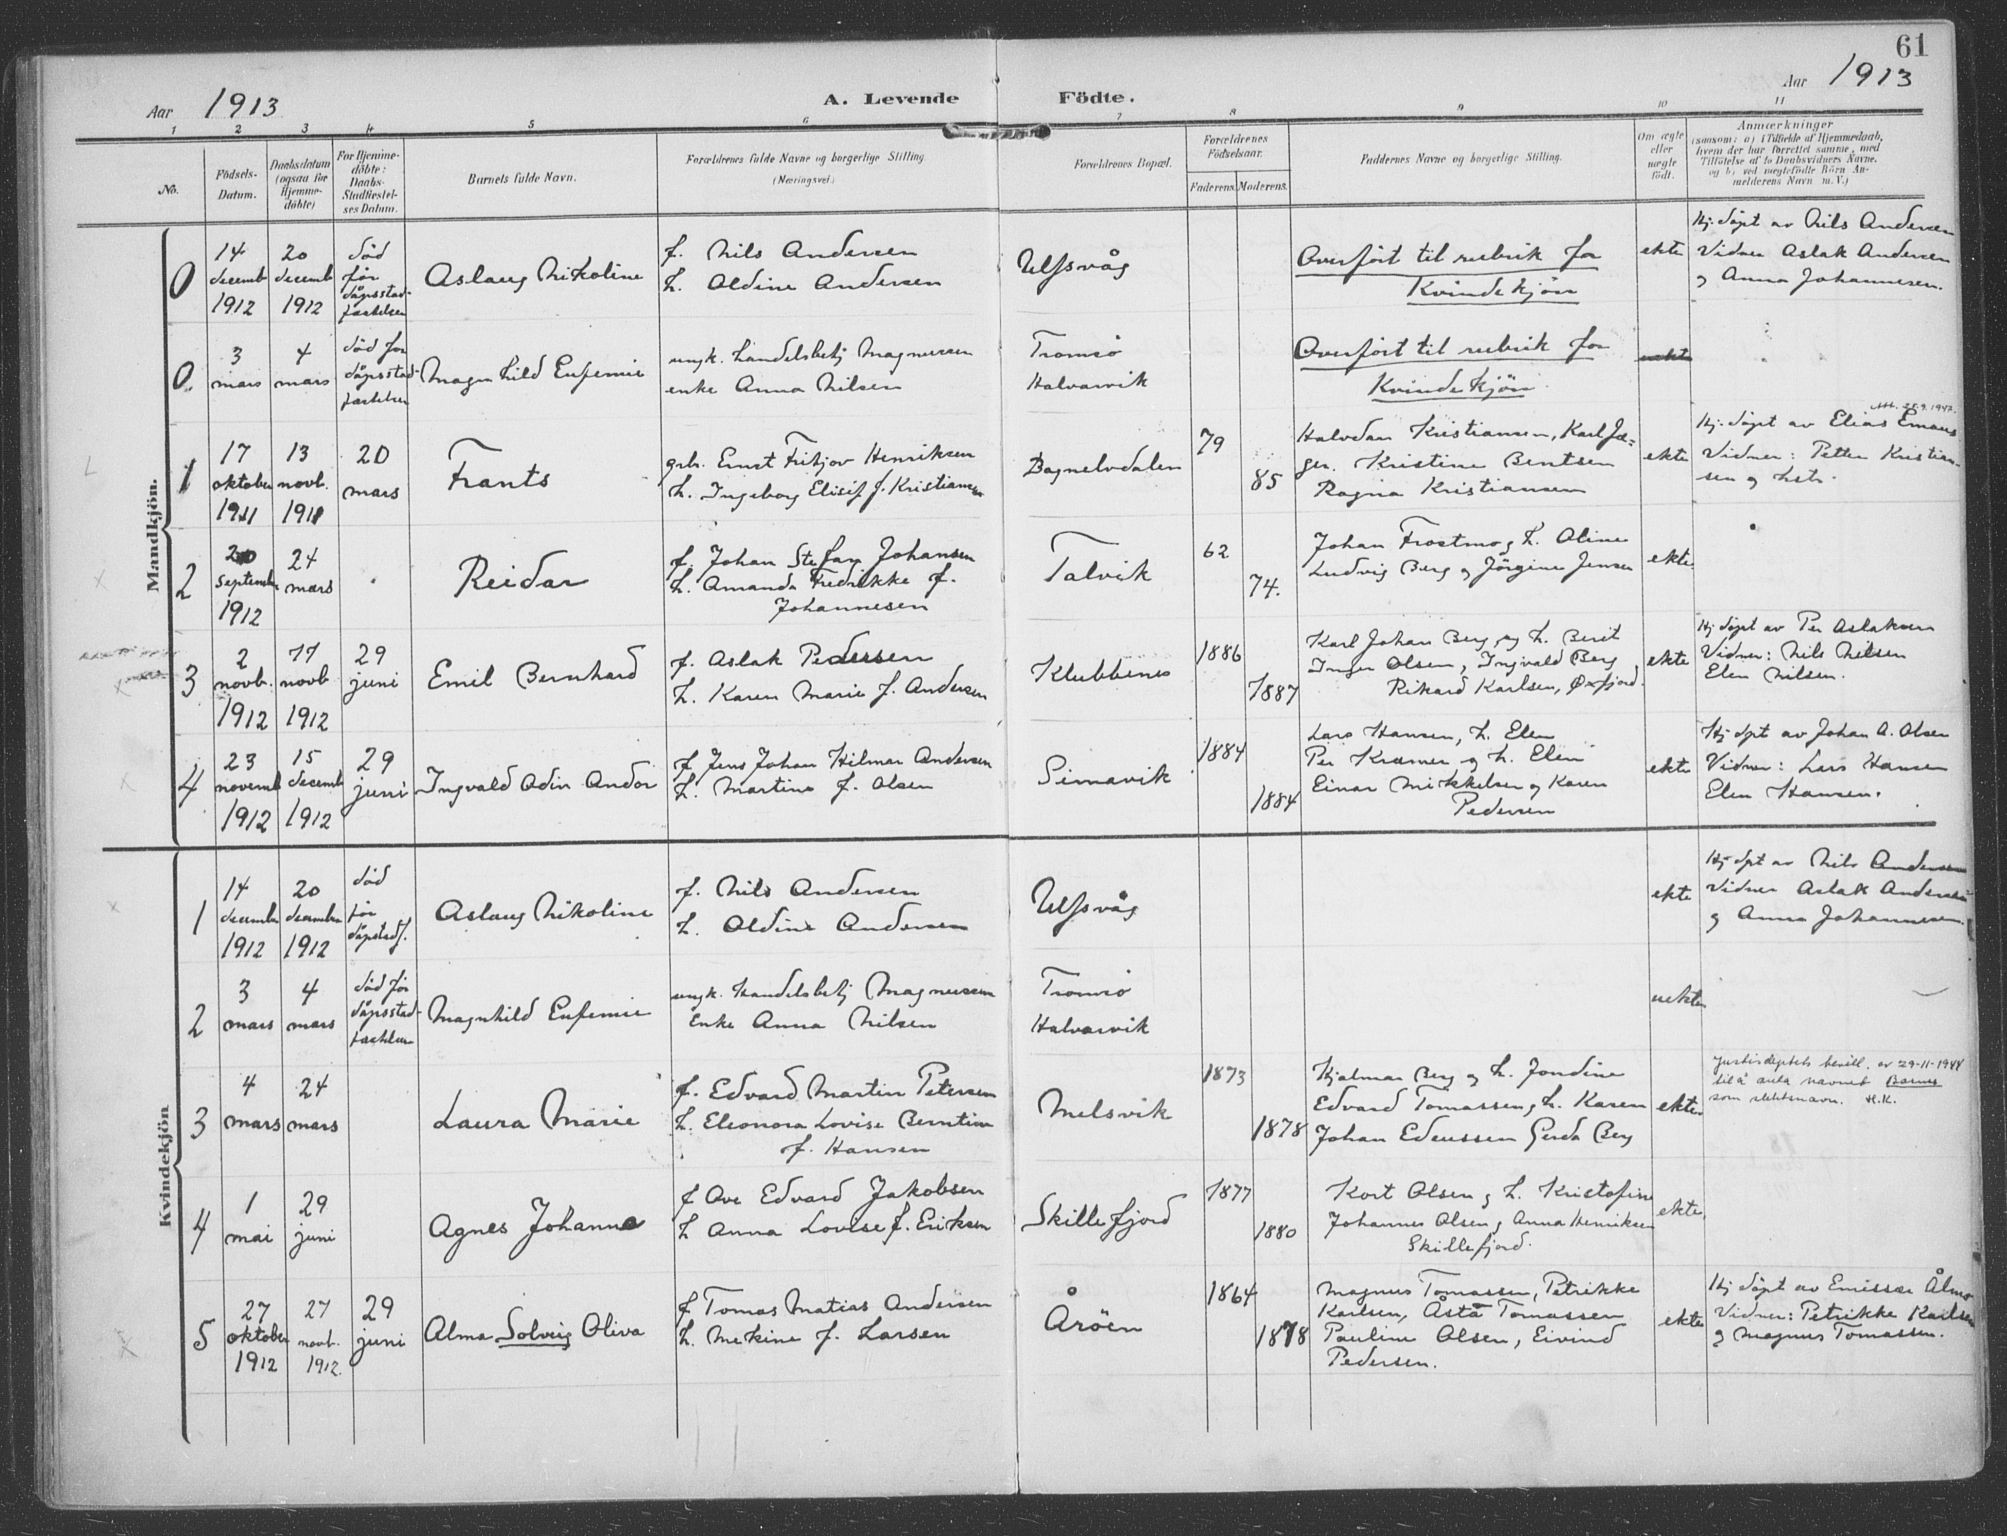 61
Aar 1913 A. Levende Födte. Aar 1913
1 2 3 4 5 6 7 8 9 10 11
No.
Födsels-Datum.
Daabsdatum (ogsaa for Hjemmedöbte)
For Hjemmedöbte: Daabs-Stadfæstelses Datum.
Barnets fulde Navn.
Forældrenes fulde Navne og borgerlige Stilling
(Næringsvei.)
Forældrenes Bopæl.
Forældrenes Födselsaar.
Faderens. Moderens.
Faddernes Navne og borgerlige Stilling.
Om ægte eller uægte födt.
Anmærkninger
(saasom: a) i Tilfælde af Hjemmedaab,
hvem der har forrettet samme, med
Tilföielse af to Daabsvidners Navne,
og b) ved uegtefödte Börn Anmelderens Navn m. V.)
Mandkjön.
0 14 decemb 1912 20 decemb 1912 död før dåpsstadfæstelsen
Aslaug Nikoline
f. Nils Andersen
h. Oldine Andersen
Ulfsvåg
Overført til rubrik for
Kvindekjøn
ekte
Hj. døpt av Nils Andersen
Vidner Aslak Andersen
og Anna Johannesen.
0. 3 mars 4 mars død før dåpsstadfæstelsen
Magnhild Eufemie
ungk. Handelsbetj Magnussen
enke Anna Nilsen
Tromsø
Halvarvik
Overført til rubrik for
Kvindekjön.
uekte
1 17 oktober 1911 13 novb. 1911 20 mars
Frants
grb. Ernst Fritjov Henriksen
h. Ingeborg Elisif f. Kristiansen
Bognelvdalen
79
85
Halvdan Kristiansen, Karl Jæ-
ger. Kristine Bentsen
Ragna Kristiansen
ekte
25.9.1947.
Hj. døpt av Elias Emaus
Vidner: Petter Kristian-
sen og hstr.
2 20 September 1912 24 mars
Reidar
f. Johan Stefan Johansen
h. Amanda Fredrikke f.
Johannesen
Talvik
62
74.
Johan Frostmo og h. Oline
Ludvig Berg og Jörgine Jensen
ekte
3 2 novb. 1912 17 novb 1912 29 juni
Emil Bernhard
f. Aslak Pedersen
h. Karen Marie f. Andersen
Klubbenes
1886
1887
Karl Johan Berg og h. Berit
Inger Olsen, Ingvald Berg
Rikard Karlsen, Øxfjord.
ekte
Hj døpt av Per Aslaksen
Vidner: Nils Nilsen
Elen Nilsen.
4 23 novemb 1912 15 decemb 1912 29 juni
Ingvald Odin Andor
f. Jens Johan Hilmar Andersen
h. Martine f. Olsen
Simavik
1884
1884
Lars Hansen, h. Elen
Per Kramer og h. Elen
Einar Mikkelsen og Karen
Pedersen
ekte
Hj dpt av Johan A. Olsen
Vidner: Lars Hansen
Elen Hansen.
Kvindekjön
1 14 december 1912 20 december 1912 død før dåpstadf.
Aslaug Nikoline
f. Nils Andersen
h. Oldine Andersen
Ulfsvåg
ekte
Hj dpt av Nils Andersen
Vidner Aslak Andersen
og Anna Johannesen.
2 3 mars 4 mars död før dåpsstadfæstelsen
Magnhild Eufemie
ungk. Handelsbetj Magnussen
Enke Anna Nilsen
Tromsø
Halvarvik
uekte
3 4 mars 24 mars
Laura Marie
f. Edvard Martin Petersen
h. Eleonora Lovise Berntine
f. Hansen
Melsvik
1873
1878
Hjalmar Berg og h. Jondine
Edvard Tomassen, h. Karen
Johan Edenssen Gerda Berg
ekte
Justisdeptets bevill. av 29-11-1944
til å anta navnet
som slektsnavn. H.K.
4 1 mai 29 juni
Agnes Johanne
f Ove Edvard Jakobsen
h Anna Lovise f. Eriksen
Skillefjord
1877
1880
Kort Olsen og h. Kristofine
Johannes Olsen og Anna Henriksen
Skillefjord.
ekte
5 27 oktober 1912 27 novb. 1912. 29 juni
Alma Solveig Oliva
f Tomas Matias Andersen
h. Mekine f. Larsen
Årøen
1864
1878
Magnus Tomassen, Petrikke
Karlsen, Åsta Tomassen
Pauline Olsen, Eivind
Pedersen.
ekte
Hj döpt av Emissær Ålmo
Vidner: Petrikke Karlsen
og Magnus Tomassen.